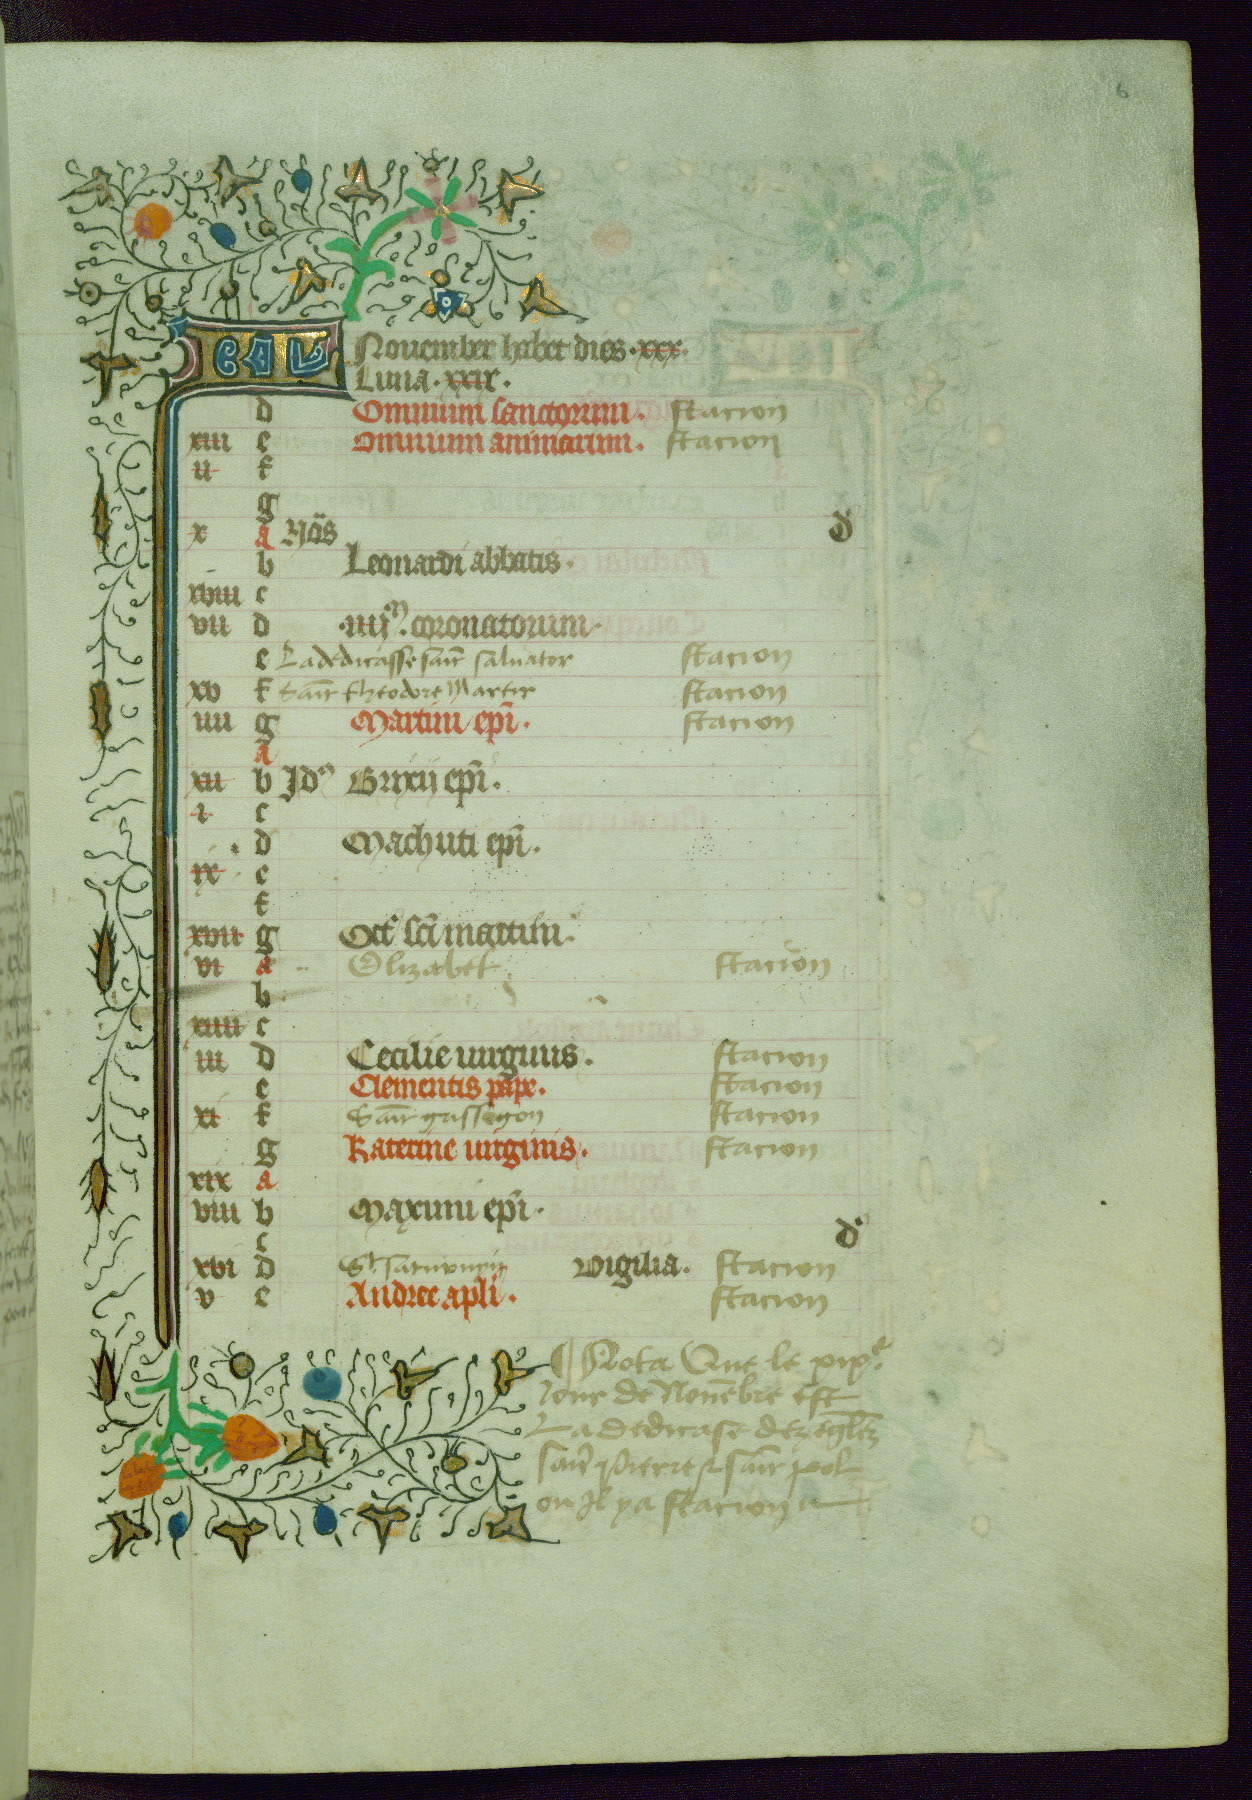 6
CAL November habet dies · xxx ·
Luna · xxix ·
d Omnium sanctorum . stacion
xiii e Omnium animarum . stacion
ii f
g
x a Nōs d
b Leonardi abbatis .
xviii c
vii d · iiij . coronatorum .
e La dedicasse sait saluator stacion
xv f Sait theodore Martir stacion
iiii g Martini epī . stacion
a
xii b Jd Brixij epī .
i c
d Machuti epī .
ix e
f
xvii g Oct scī martini .
vi a Elizabet stacion
b
xiiii c
iii d Cecilie uirginis . stacion
e Clementis pape . stacion
xi f Sait stacion
g Katerine uirginis . stacion
xix a
viii b Maximi epī .
c d
xvi d St saturnin Vigilia . stacion
v e Andree apli . stacion
¶ Nota Que le
iour de Nouēbre est
La dedicase dez
sait pierre sait pol
ou Jl ya stacion